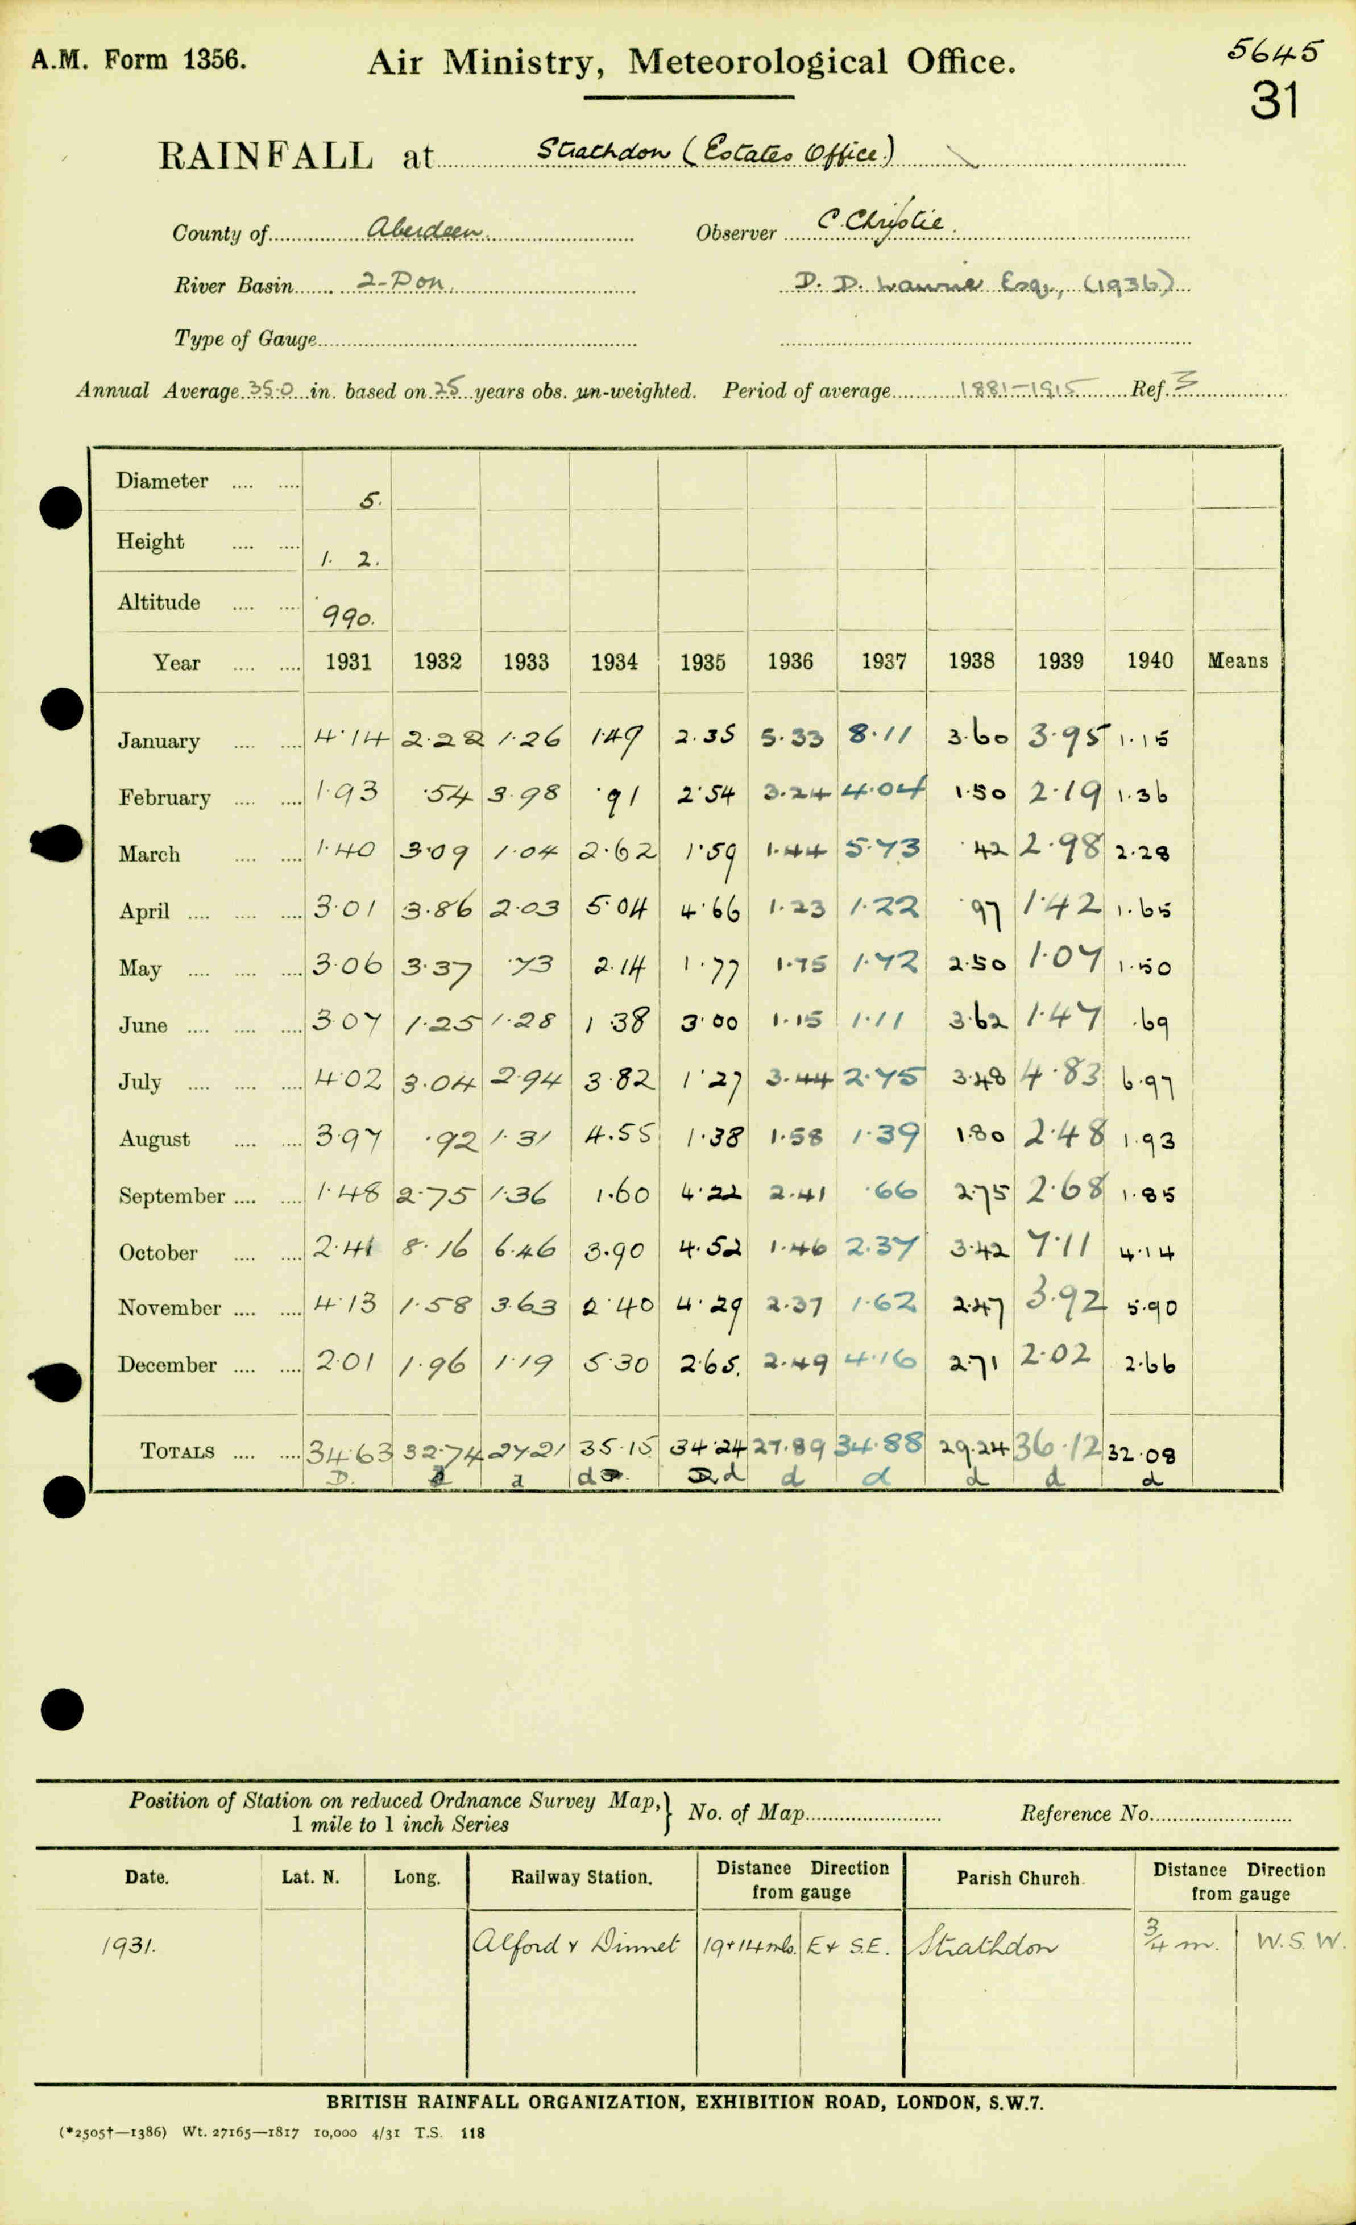 A.M. Form 1356. Air Ministry, Meteorological Office. 5645
31
RAINFALL at Strathdon (Estates Office)
County of Aberdeen Observer C. Christie.
River Basin 2-Don. D. D. Lawrie Esq., (1936)
Type of Gauge
Annual Average 35.0 in. based on 25 years obs. un-weighted. Period of average 1881-1915 Ref. 3
Diameter .... .... 5.
Height .... .... 1. 2.
Altitude .... .... 990.
Year .... .... 1931 1932 1933 1934 1935 1936 1937 1938 1939 1940 Means
January .... .... 4.14 2.22 1.26 1.49 2.35 5.33 8.11 3.60 3.95 1.15
February .... .... 1.93 .54 3.98 .91 2.54 3.24 4.04 1.50 2.19 1.36
March .... .... 1.40 3.09 1.04 2.62 1.59 1.44 5.73 .42 2.98 2.28
April .... .... .... 3.01 3.86 2.03 5.04 4.66 1.23 1.22 .97 1.42 1.65
May .... .... .... 3.06 3.37 .73 2.14 1.77 1.75 1.72 2.50 1.07 1.50
June .... .... .... 3.07 1.25 1.28 1.38 3.00 1.15 1.11 3.62 1.47 .69
July .... .... .... 4.02 3.04 2.94 3.82 1.27 3.44 2.75 3.48 4.83 6.97
August .... .... 3.97 .92 1.31 4.55 1.38 1.58 1.39 1.80 2.48 1.93
September .... .... 1.48 2.75 1.36 1.60 4.22 2.41 .66 2.75 2.68 1.85
October .... .... 2.41 8.16 6.46 3.90 4.52 1.46 2.37 3.42 7.11 4.14
November .... .... 4.13 1.58 3.63 2.40 4.29 2.37 1.62 2.47 3.92 5.90
December .... .... 2.01 1.96 1.19 5.30 2.65. 2.49 4.16 2.71 2.02 2.66
TOTALS .... .... 34.63 32.74 27.21 35.15 34.24 27.89 34.88 29.24 36.12 32.08
D. d d d d d d d d
Position of Station on reduced Ordnance Survey Map, } No. of Map Reference No.
1 mile to 1 inch Series
Date. Lat. N. Long. Railway Station. Distance Direction from gauge Parish Church. Distance Direction from gauge
1931. Alford & Dinnet 19 & 14 mls. E & S.E. Strathdon 3/4 m. W.S.W.
BRITISH RAINFALL ORGANIZATION, EXHIBITION ROAD, LONDON, S.W.7.
(*2505†—1386) Wt. 27165—1817 10,000 4/31 T.S. 118